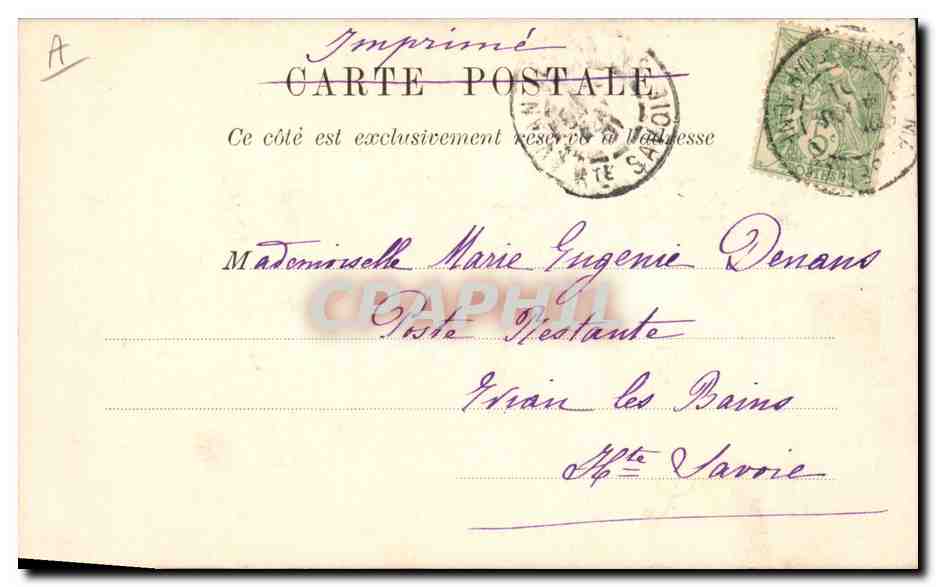 A
Imprimé
CARTE POSTALE
Ce côté est exclusivement réservé à l'adresse
HTE SAVOIE
5c
POSTES
Mademoiselle Marie Eugenie Denans
CPAPHIL
Poste Restante
Evian les Bains
Hte Savoie